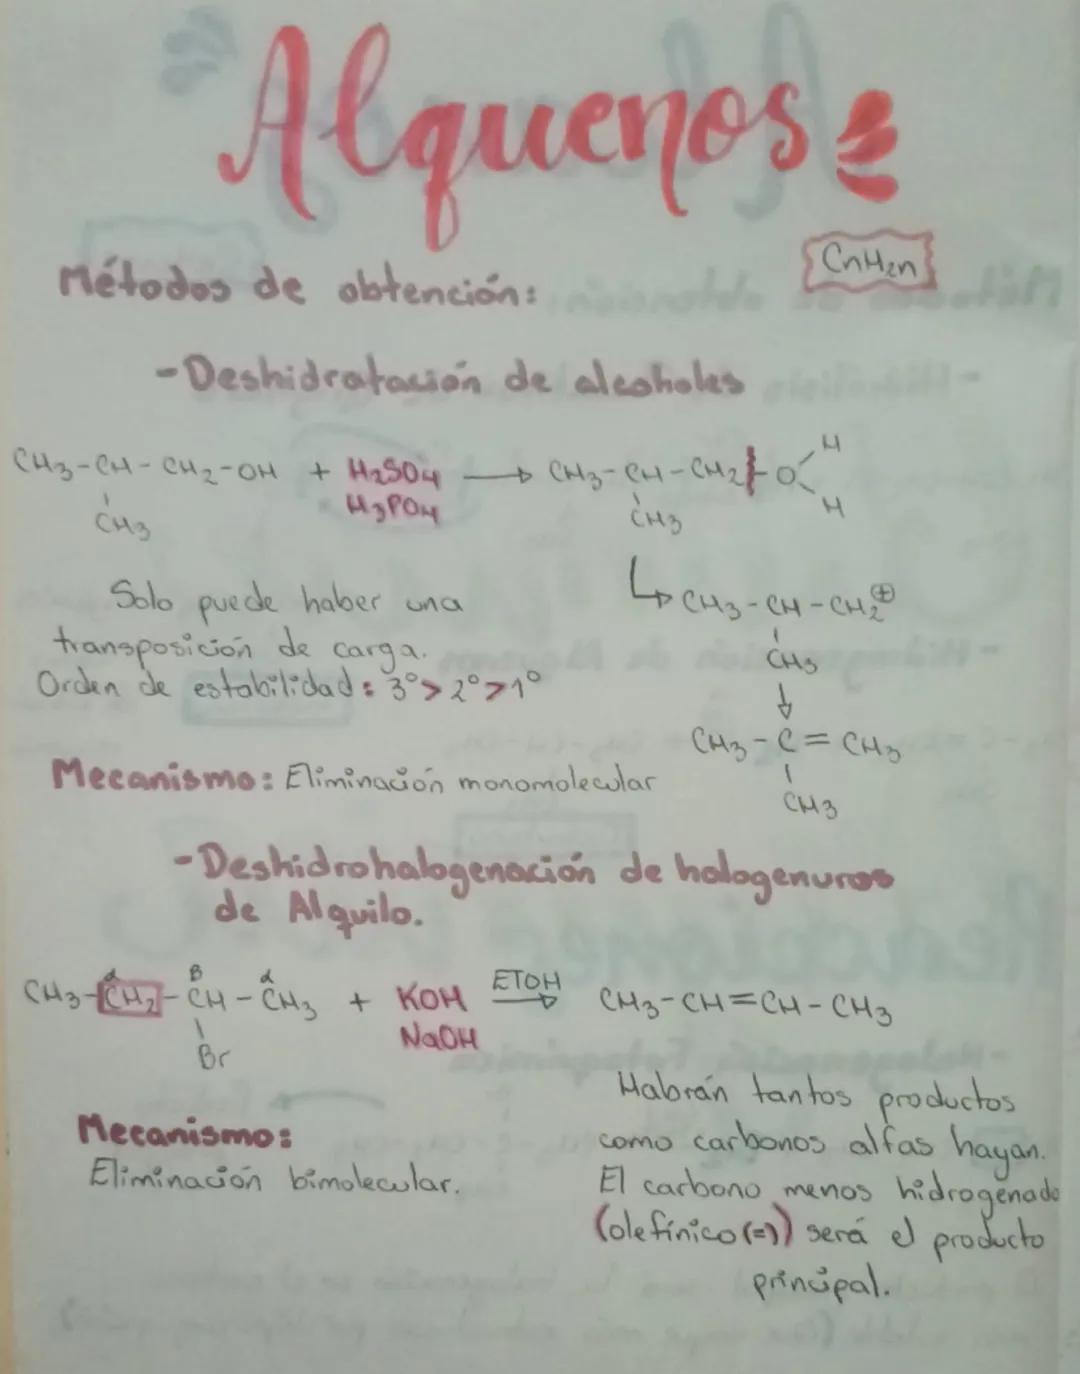 Alquenos
CnH2n
Métodos de obtención:
-Deshidratación de alcoholes
CH3-CH-CH2-OH + H2SO4 → CH3-CH-CH2-O H
CH3 H3PO4 CH3 H
Solo puede haber una
transposición de carga.
Orden de estabilidad: 3°>2°>1°
↳ CH3-CH-CH2⊕
CH3
↓
CH3-C=CH3
CH3
Mecanismo: Eliminación monomolecular
-Deshidrohalogenación de halogenuros
de Alquilo.
α B α
CH3-CH2-CH-CH3 + KOH ETOH → CH3-CH=CH-CH3
Br NaOH
Mecanismo:
Eliminación bimolecular.
Habrán tantos productos
como carbonos alfas hayan.
El carbono menos hidrogenado
(olefínico(=)) será el producto
principal.